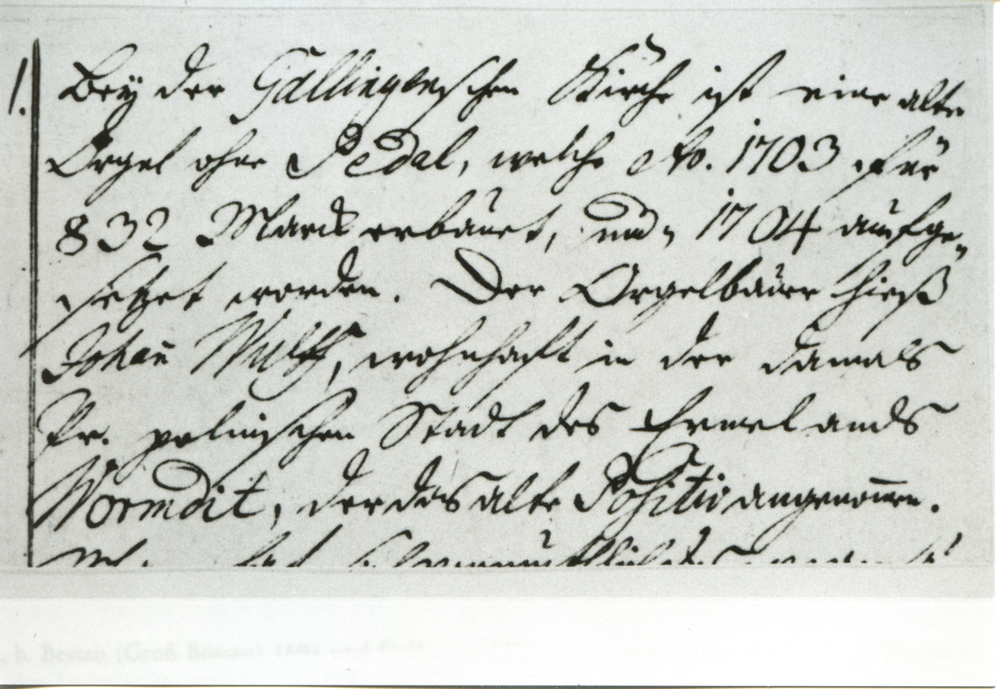 1. Bey der Gallingenschen Kirche ist eine alte
Orgel ohne Pedal, welche Ao. 1703 für
832 Marck erbauet, und 1704 aufge-
setzet worden. Der Orgelbauer hieß
Johan Wulff, wohnhaft in der damals
Pr. polnischen Stadt des Ermelands
Wormdit, der das alte Positiv angenommen.